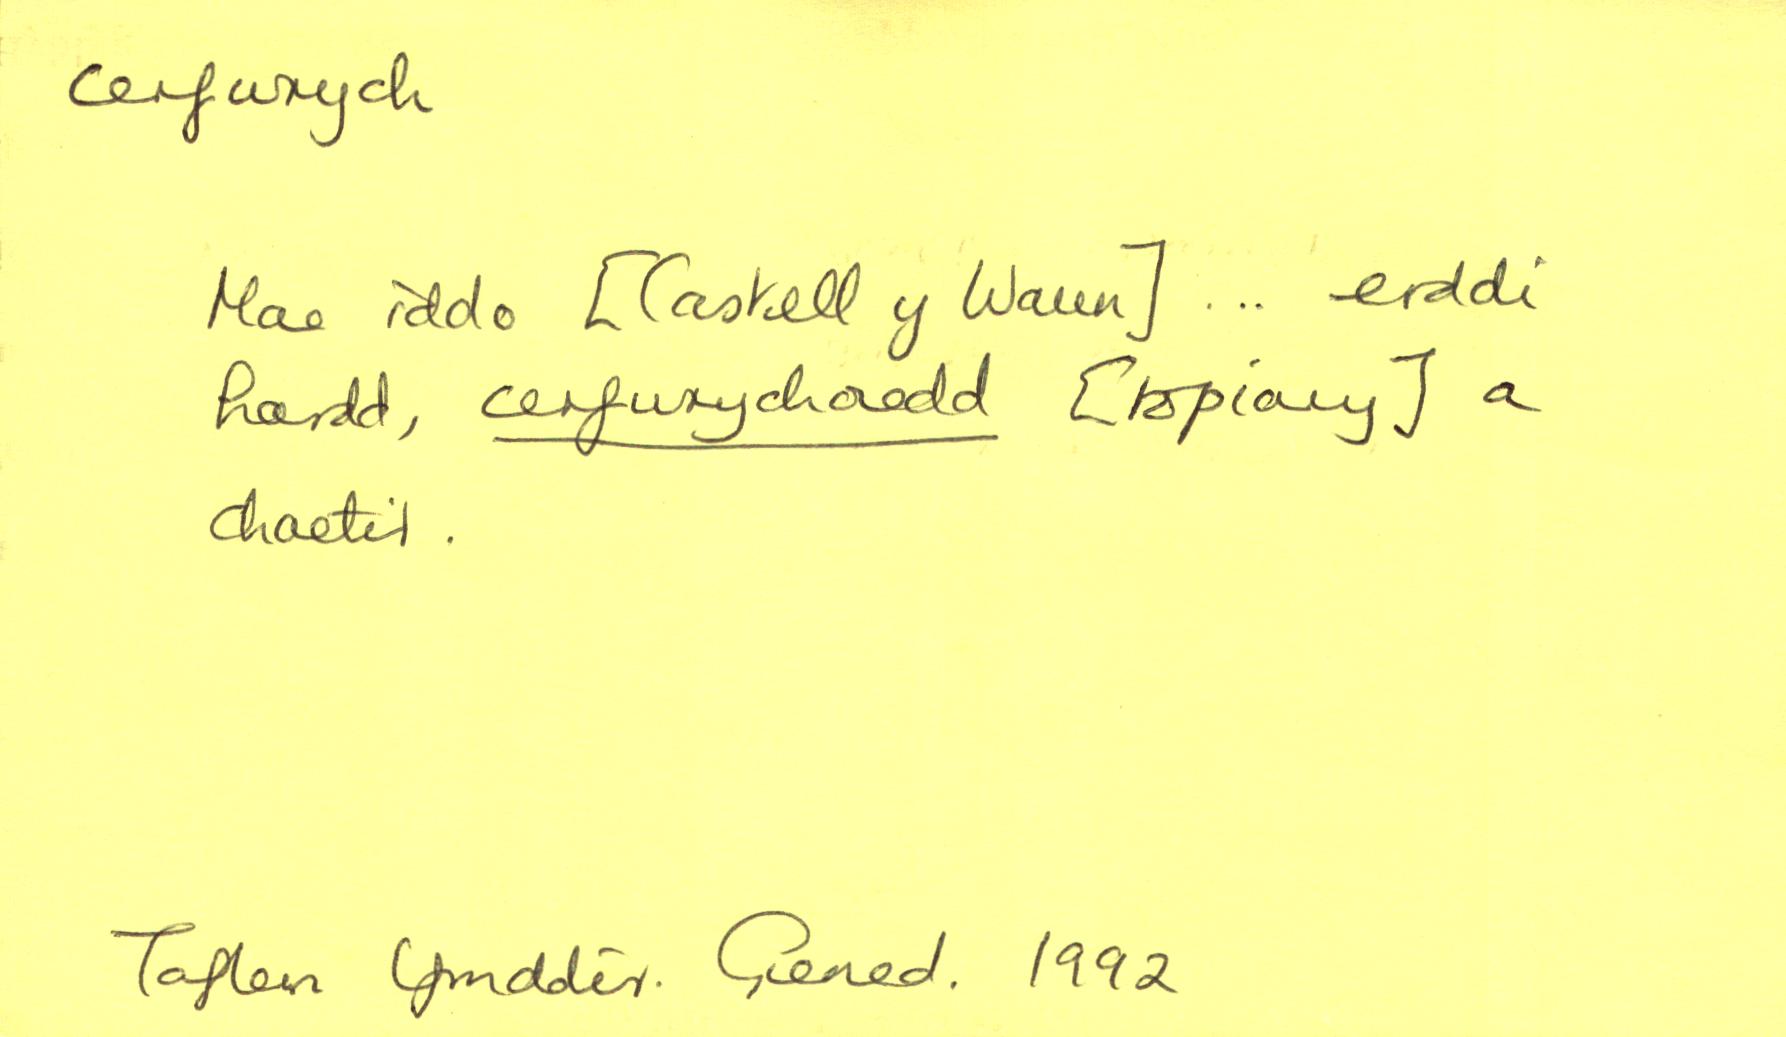 cerfwrych
Mae iddo [Castell y Waun] ... erddi
hardd, cerfwrychoedd [topiary] a
chaetir.
Taflen Ymddir. Gened. 1992